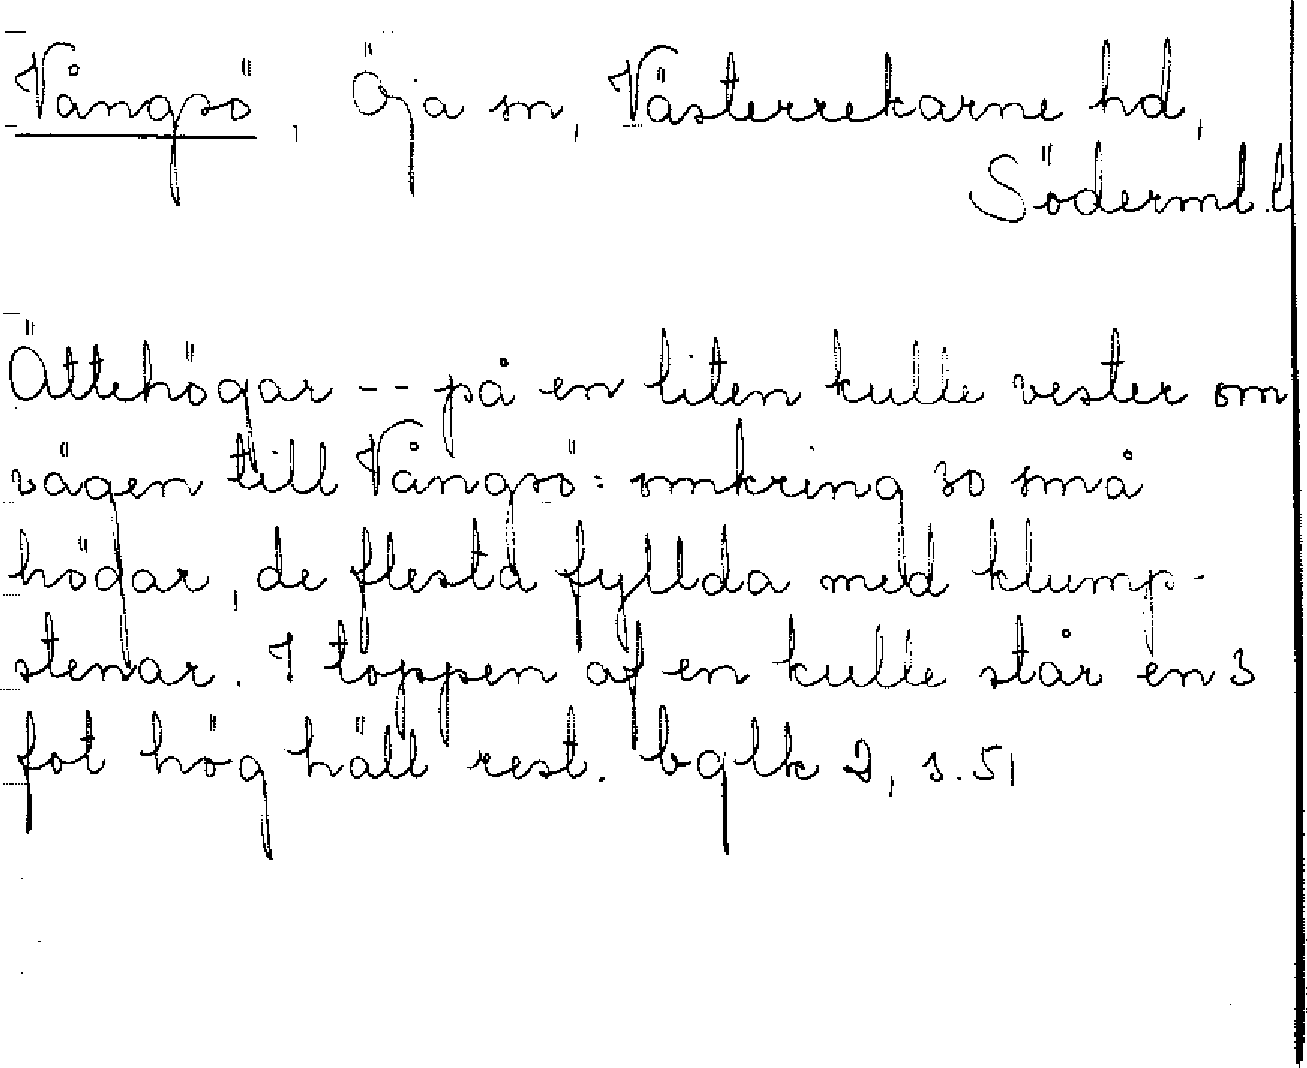 Vångsö, Öja sn, Västerrekarne hd,
Söderml.l
Ättehögar -- på en liten kulle vester om
vägen till Vångsö: omkring 30 små
högar, de flesta fyllda med klump-
stenar. I toppen af en kulle står en 3
fot hög häll rest. bglk 2, s. 51